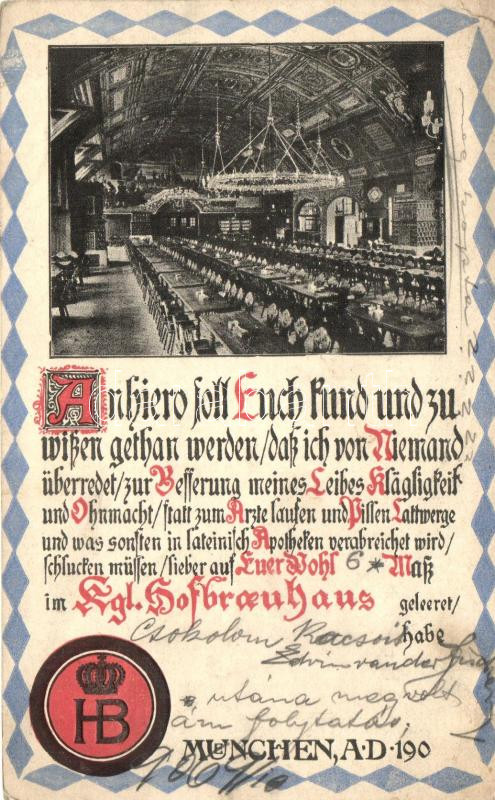 Anhiero soll Euch kund und zu
wißen gethan werden/daß ich von Niemand
überredet/zur Besserung meines Leibes Klägligkeit
und Ohnmacht/statt zum Arzte laufen und Pillen Lattwerge
und was sonsten in lateinisch Apotheken verabreichet wird/
schlucken müssen/lieber auf Euer Wohl 6 * Maß
im Kgl. Hofbræuhaus geleeret/
habe
Csokolom
Edvin vander
* utána megvolt
ám folytatás,
HB
MUENCHEN, A·D·190
906